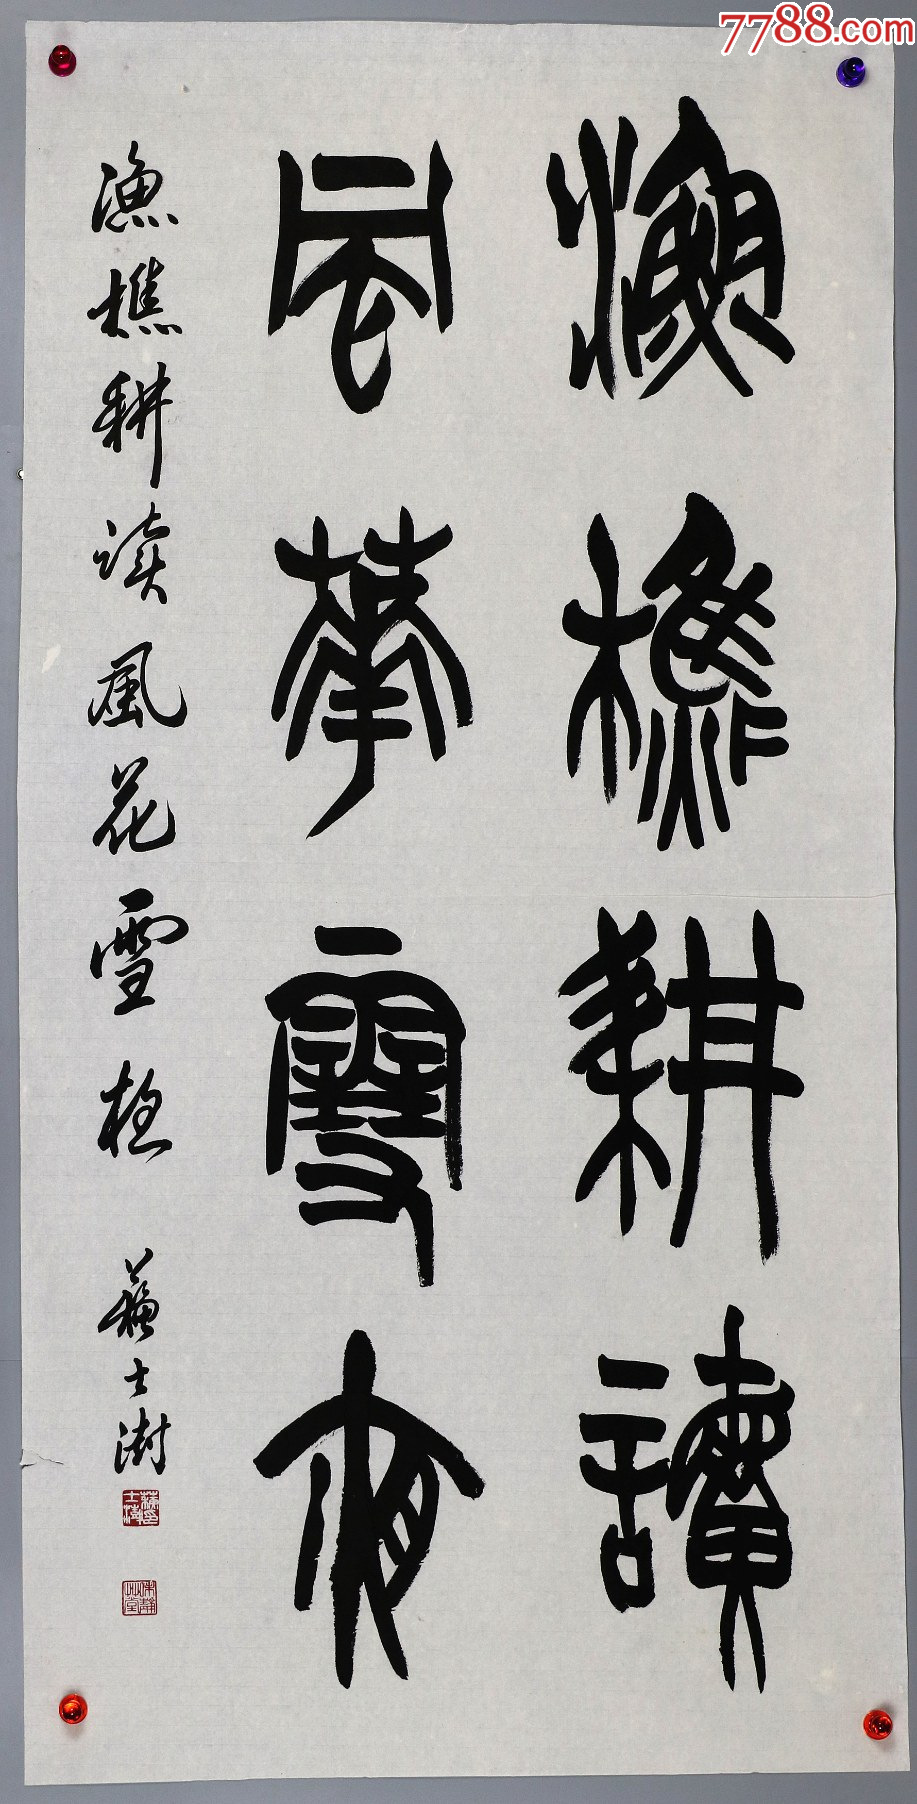 漁樵耕讀
風華雪夜
漁樵耕读風花雪夜
蘇士澍
蘇士澍印
7788.com